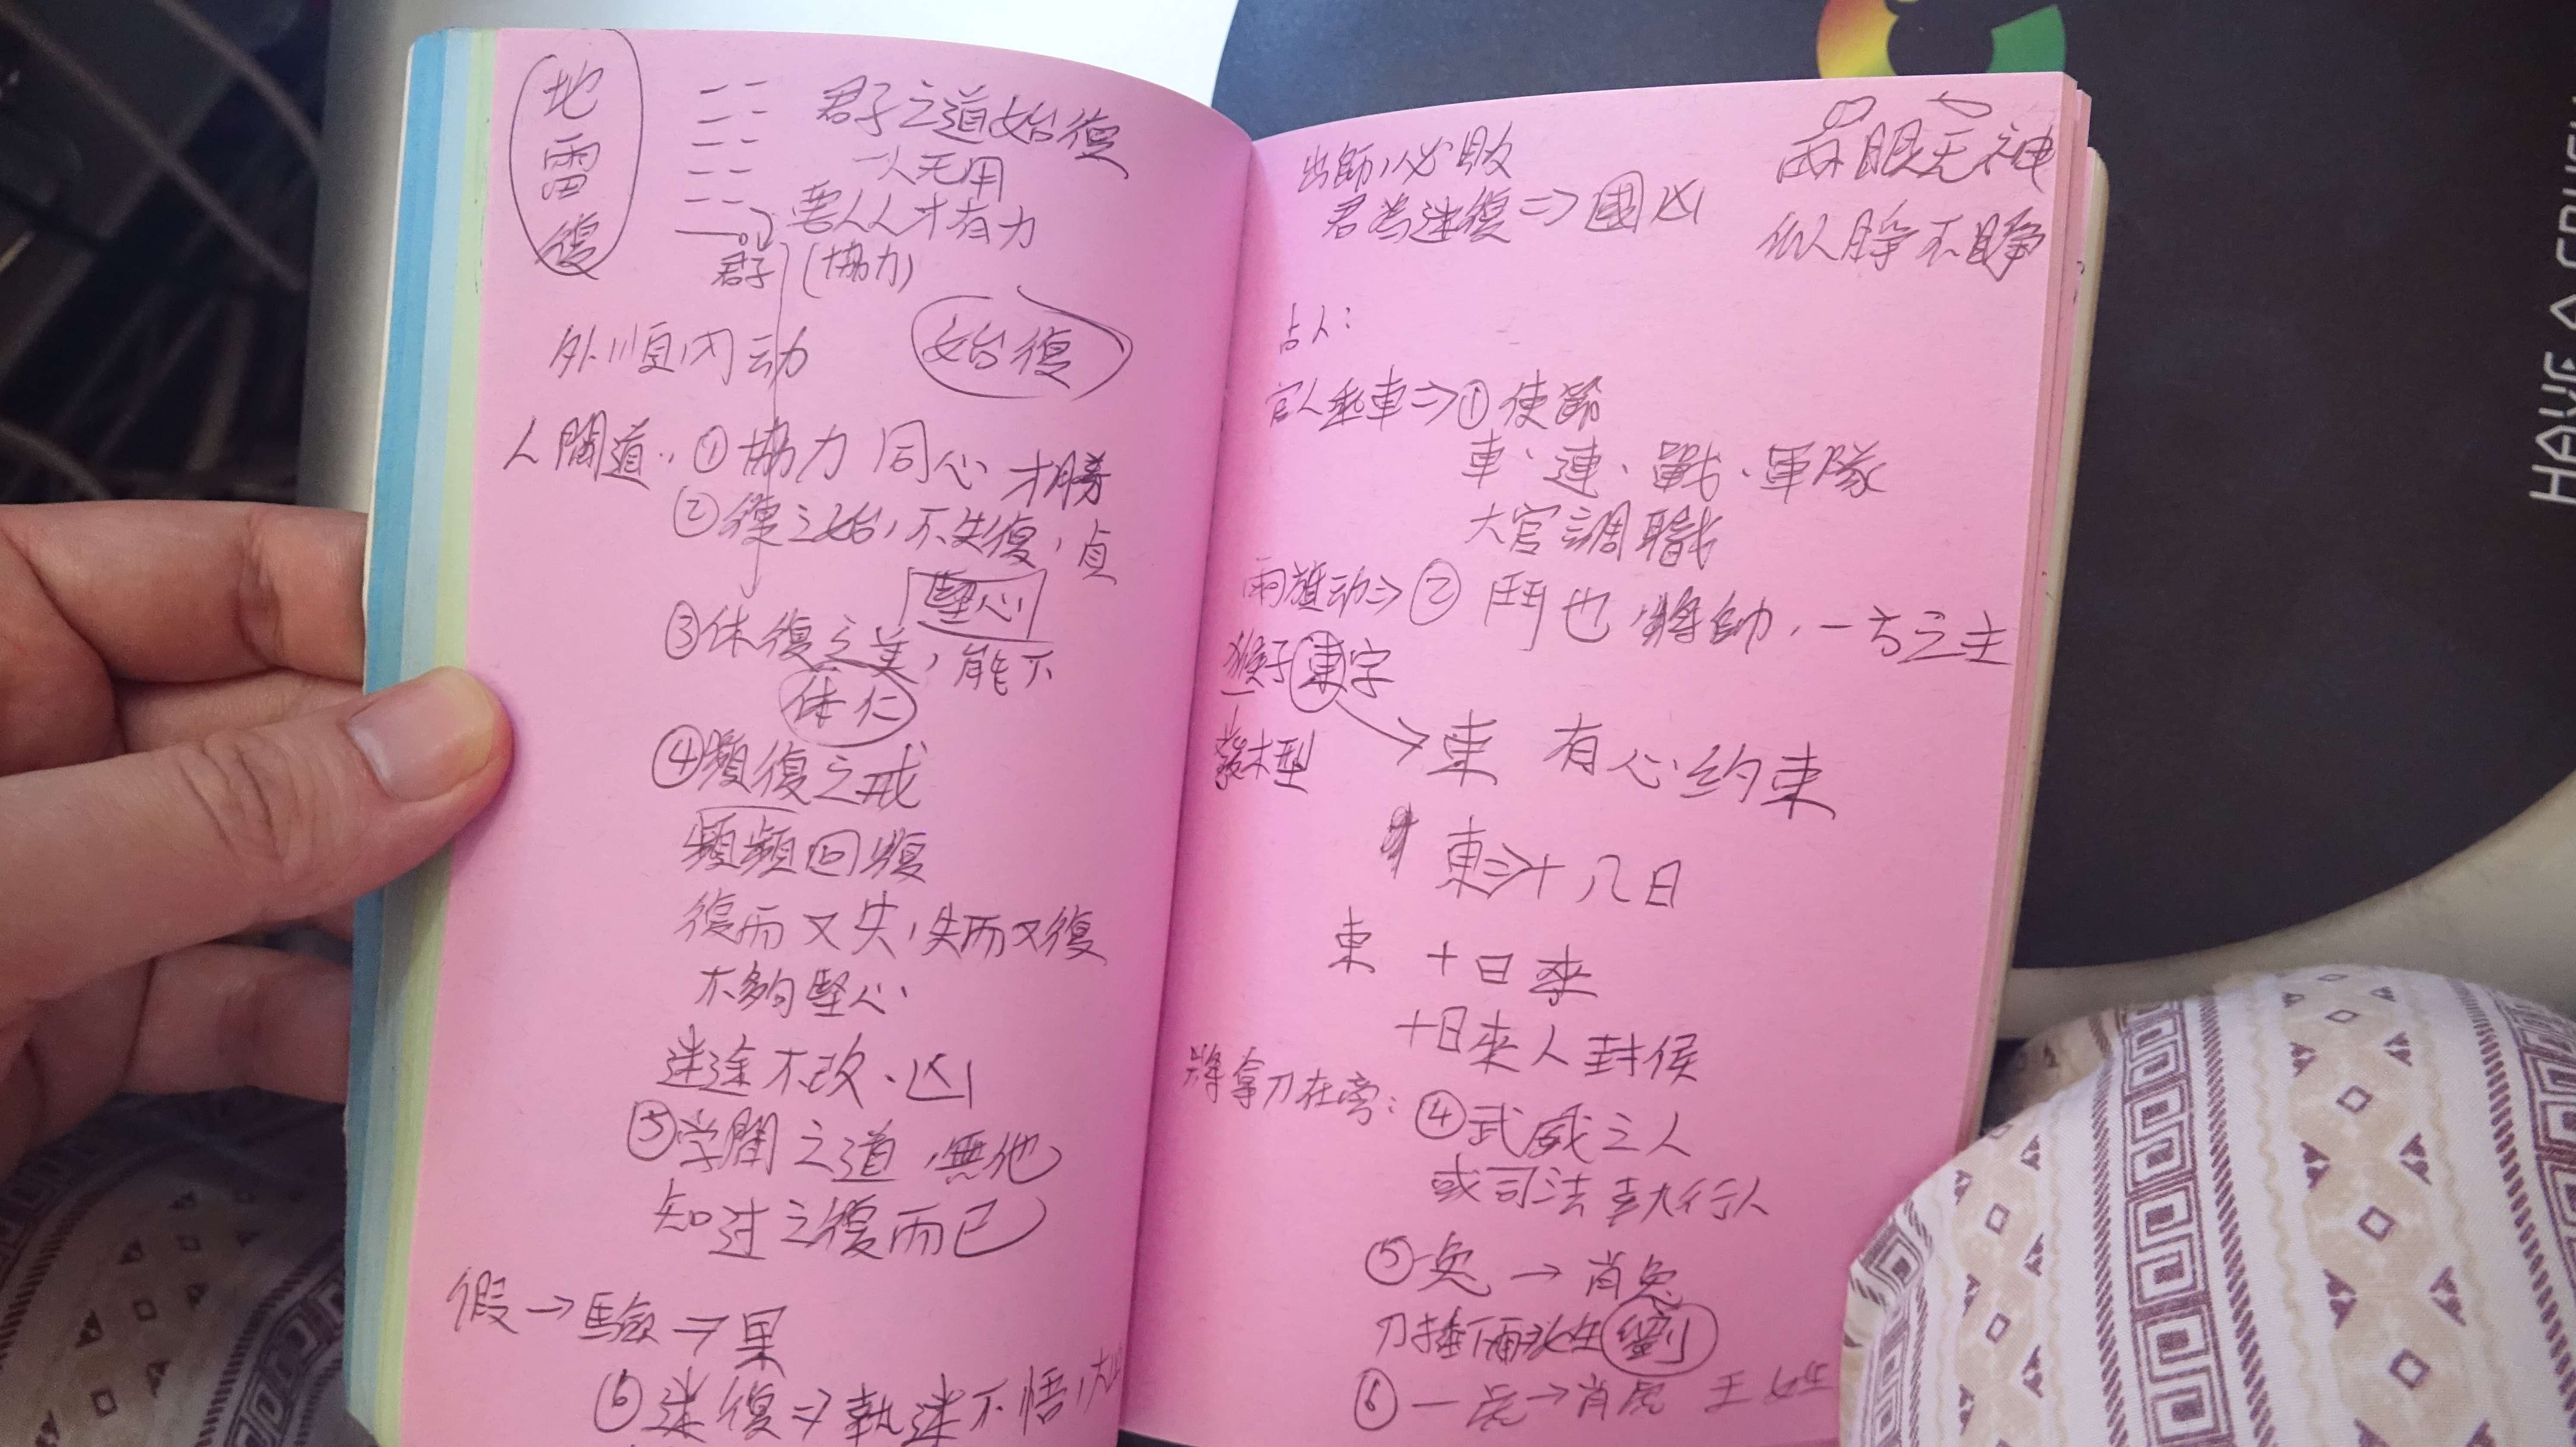 地雷復
君子之道始復
一人无用
要人人才有力
君子 (協力)
外順内动 始復
人間道: ①協力 同心 才勝
②復之始,不失復,貞
堅心
③休復之美,能下
休仁
④頻復之戒
頻頻回復
復而又失,失而又復
不夠堅心
迷途不改、凶
⑤学問之道,無他
知过之復而已
假→驗⇒果
⑥迷復⇒執迷不悟,大凶
出師必敗
君為迷復⇒國凶
兩眼无神
似睜不睜
占人:
官人乘車⇒①使節
車、連、戰、軍隊
大官調職
兩旗动⇒②鬥也,將帥,一方之主
猴子東字
→束 有心約束
東⇒十八日
東 十日來
十日來人封侯
將拿刀在旁: ④武威之人
或司法執行人
⑤兔→肖兔
劉
⑥一虎→肖虎 王姓
HAVE A